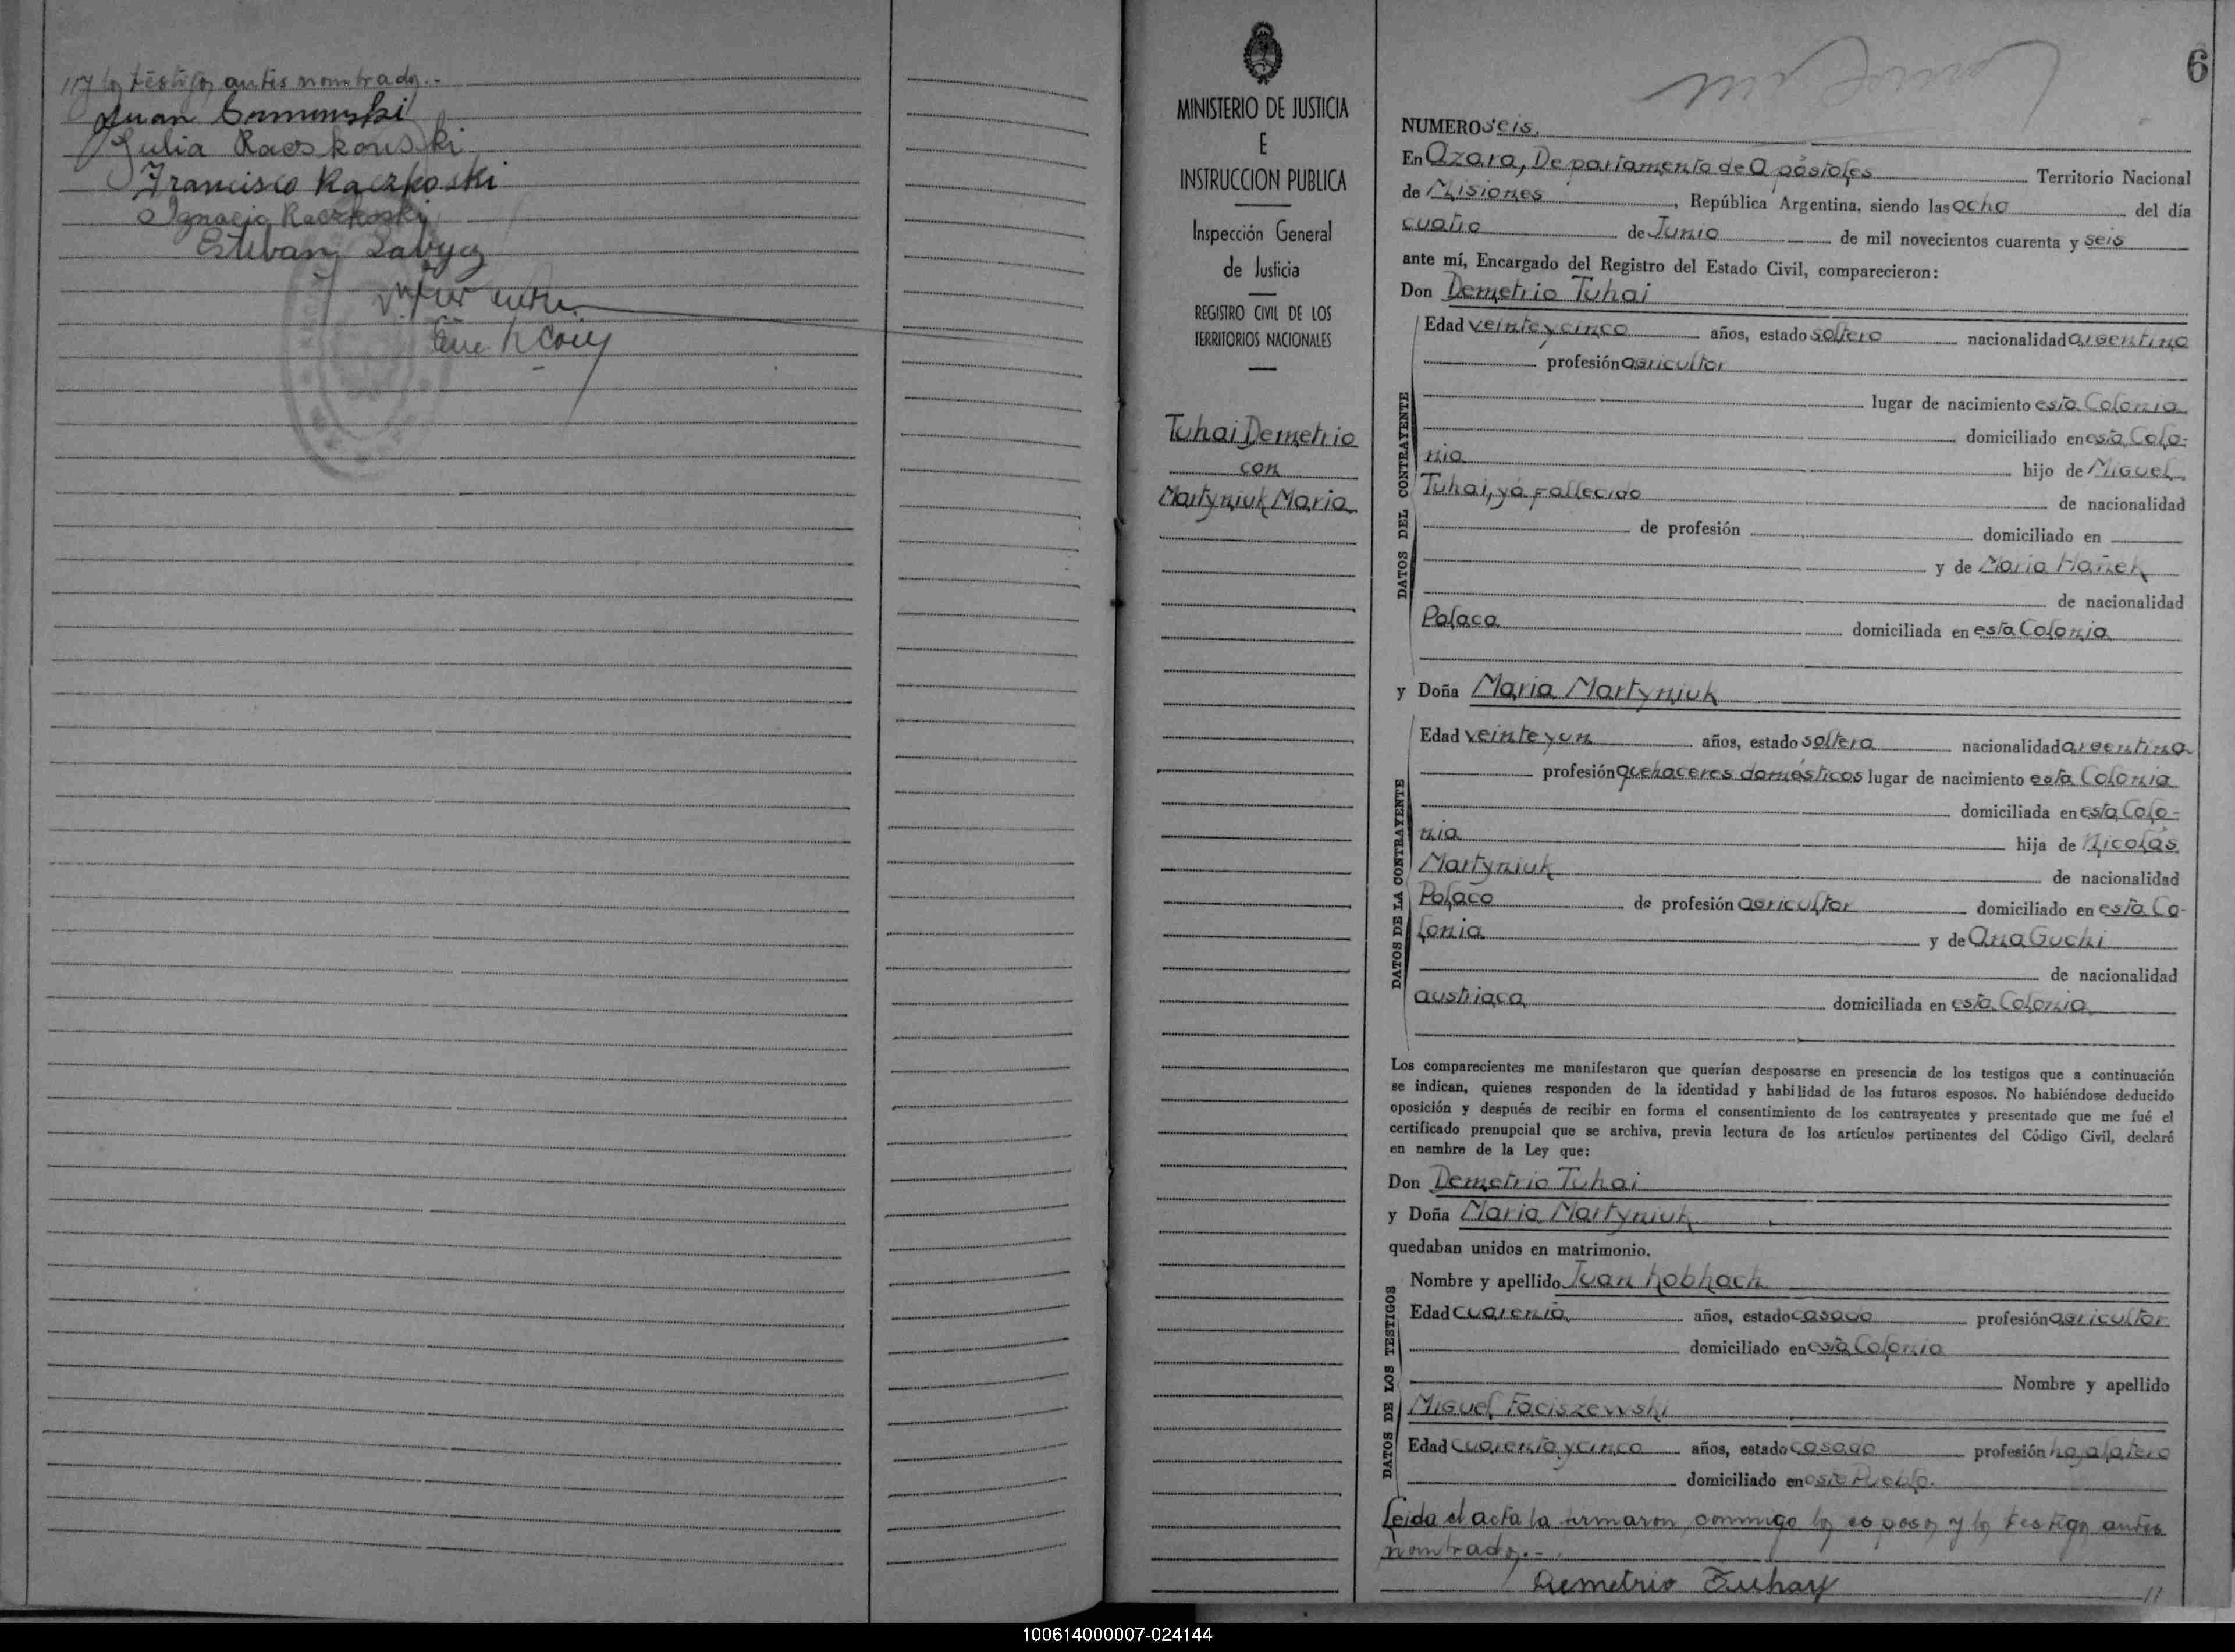 //y los testigos antes nombrados.-
Juan
Julia Racskouski
Francisco Raczkoski
Ignacio Raczkoski
Esteban
MINISTERIO DE JUSTICIA
E
INSTRUCCION PUBLICA
Inspección General
de Justicia
REGISTRO CIVIL DE LOS
TERRITORIOS NACIONALES
Tuhai Demetrio
con
Martyniuk Maria
6
NUMERO seis.
En Azara, Departamento de Apóstoles Territorio Nacional
de Misiones, República Argentina, siendo las ocho del día
cuatro de Junio de mil novecientos cuarenta y seis
ante mí, Encargado del Registro del Estado Civil, comparecieron:
Don Demetrio Tuhai
DATOS DEL CONTRAYENTE
Edad veinte y cinco años, estado soltero nacionalidad argentino
profesión agricultor
lugar de nacimiento esta Colonia
domiciliado en esta Colo-
nia hijo de Miguel
Tuhai, yá fallecido de nacionalidad
de profesión domiciliado en
y de Maria Hañek
de nacionalidad
Polaca domiciliada en esta Colonia
y Doña Maria Martyniuk
DATOS DE LA CONTRAYENTE
Edad veinte y un años, estado soltera nacionalidad argentina
profesión quehaceres domésticos lugar de nacimiento esta Colonia
domiciliada en esta Colo-
nia hija de Nicolás
Martyniuk de nacionalidad
Polaco de profesión agricultor domiciliado en esta Co-
lonia y de Ana Guchi
de nacionalidad
austriaca domiciliada en esta Colonia
Los comparecientes me manifestaron que querían desposarse en presencia de los testigos que a continuación
se indican, quienes responden de la identidad y habilidad de los futuros esposos. No habiéndose deducido
oposición y después de recibir en forma el consentimiento de los contrayentes y presentado que me fué el
certificado prenupcial que se archiva, previa lectura de los artículos pertinentes del Código Civil, declaré
en nombre de la Ley que:
Don Demetrio Tuhai
y Doña Maria Martyniuk
quedaban unidos en matrimonio.
DATOS DE LOS TESTIGOS
Nombre y apellido Juan Kobhach
Edad cuarenta años, estado casado profesión agricultor
domiciliado en esta Colonia
Nombre y apellido
Miguel Faciszewski
Edad cuarenta y cinco años, estado casado profesión hojalatero
domiciliado en este Pueblo.
Leida el acta la firmaron conmigo los esposos y los testigos antes
nombrados.-
Demetrio Tuhay //
100614000007-024144